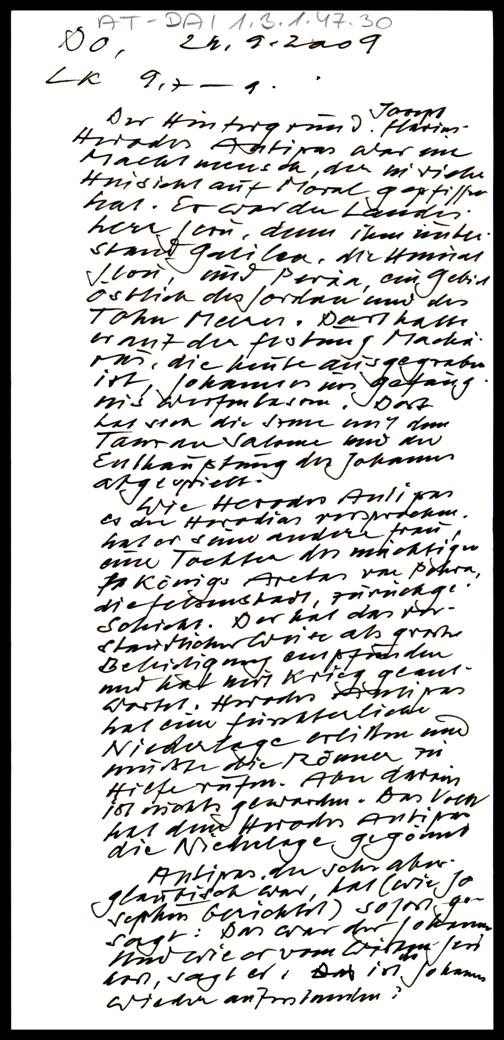 AT-DAI 1.3.1.47.30
Do, 24.9.2009
Lk 9,7–9.
Der Hintergrund. Joseph Flavius.
Herodes Antipas war ein
Machtmensch, der in vieler
Hinsicht auf Moral gepfiffen
hat. Er war der Landes-
herr Jesu, denn ihm unter-
stand Galiläa, die Heimat
Jesu, und Peräa, ein Gebiet
östlich des Jordan und des
Toten Meeres. Dort hatte
er auf der Festung Machä-
rus, die heute ausgegraben
ist, Johannes ins Gefäng-
nis werfen lassen. Dort
hat sich die Szene mit dem
Tanz der Salome und der
Enthauptung des Johannes
abgespielt.
Wie Herodes Antipas
es der Herodias versprochen,
hat er seine andere Frau,
eine Tochter des mächtigen
Königs Aretas von Petra,
die Felsenstadt, zurückge-
schickt. Der hat das ver-
ständlicher Weise als grobe
Beleidigung empfunden
und hat mit Krieg geant-
wortet. Herodes Antipas
hat eine fürchterliche
Niederlage erlitten und
mußte die Römer zu
Hilfe rufen. Aber daraus
ist nichts geworden. Das Volk
hat dem Herodes Antipas
die Niederlage gegönnt
Antipas, der sehr aber-
gläubisch war, hat (wie Jo
sephus berichtet) sofort ge-
sagt: Das war der Johannes
Und wie er vom Wirken Jesu
hört, sagt er: ist Johannes
wieder auferstanden?